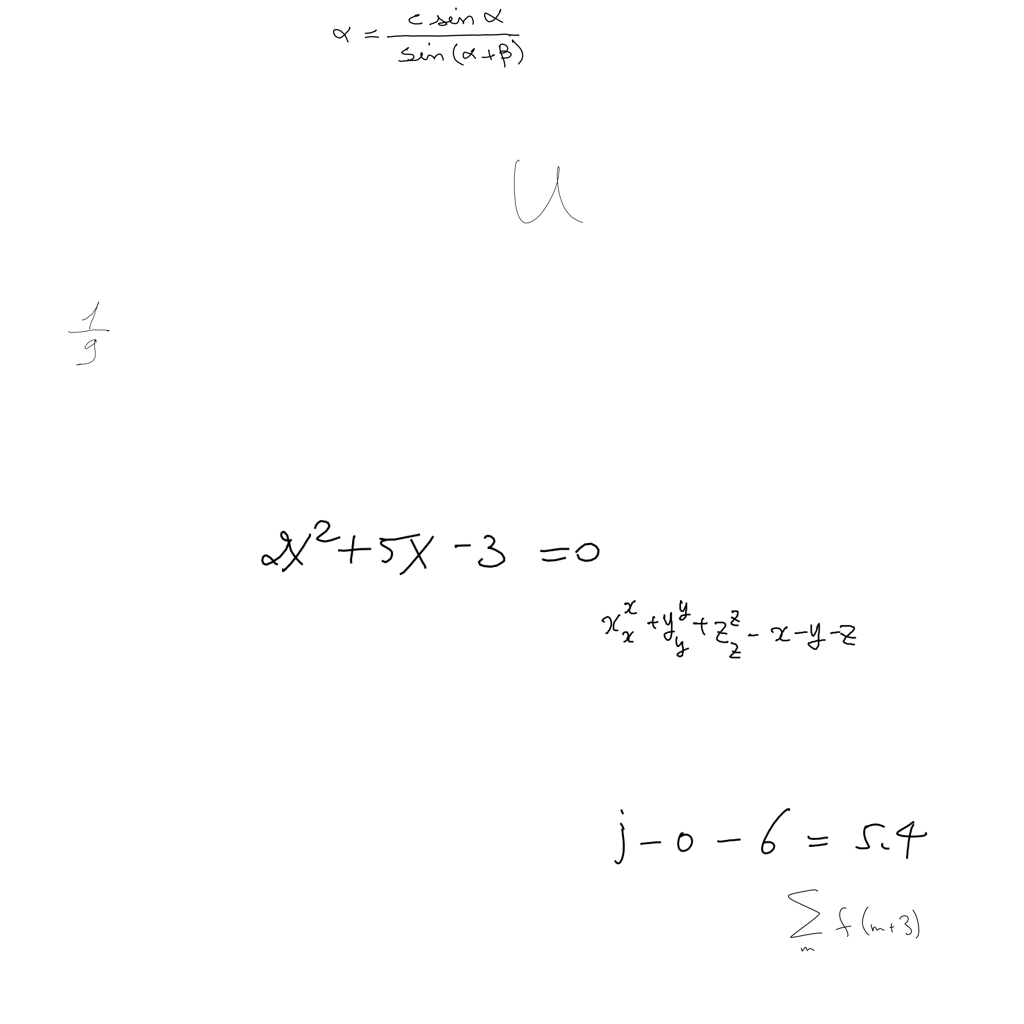 α = \frac{c sin α}{sin(α+β)}
u
\frac{1}{9}
2x^2+5x-3=0
x_x^x+y_y^y+z_z^z-x-y-z
j-0-6=5.4
\sum_m f(m+3)